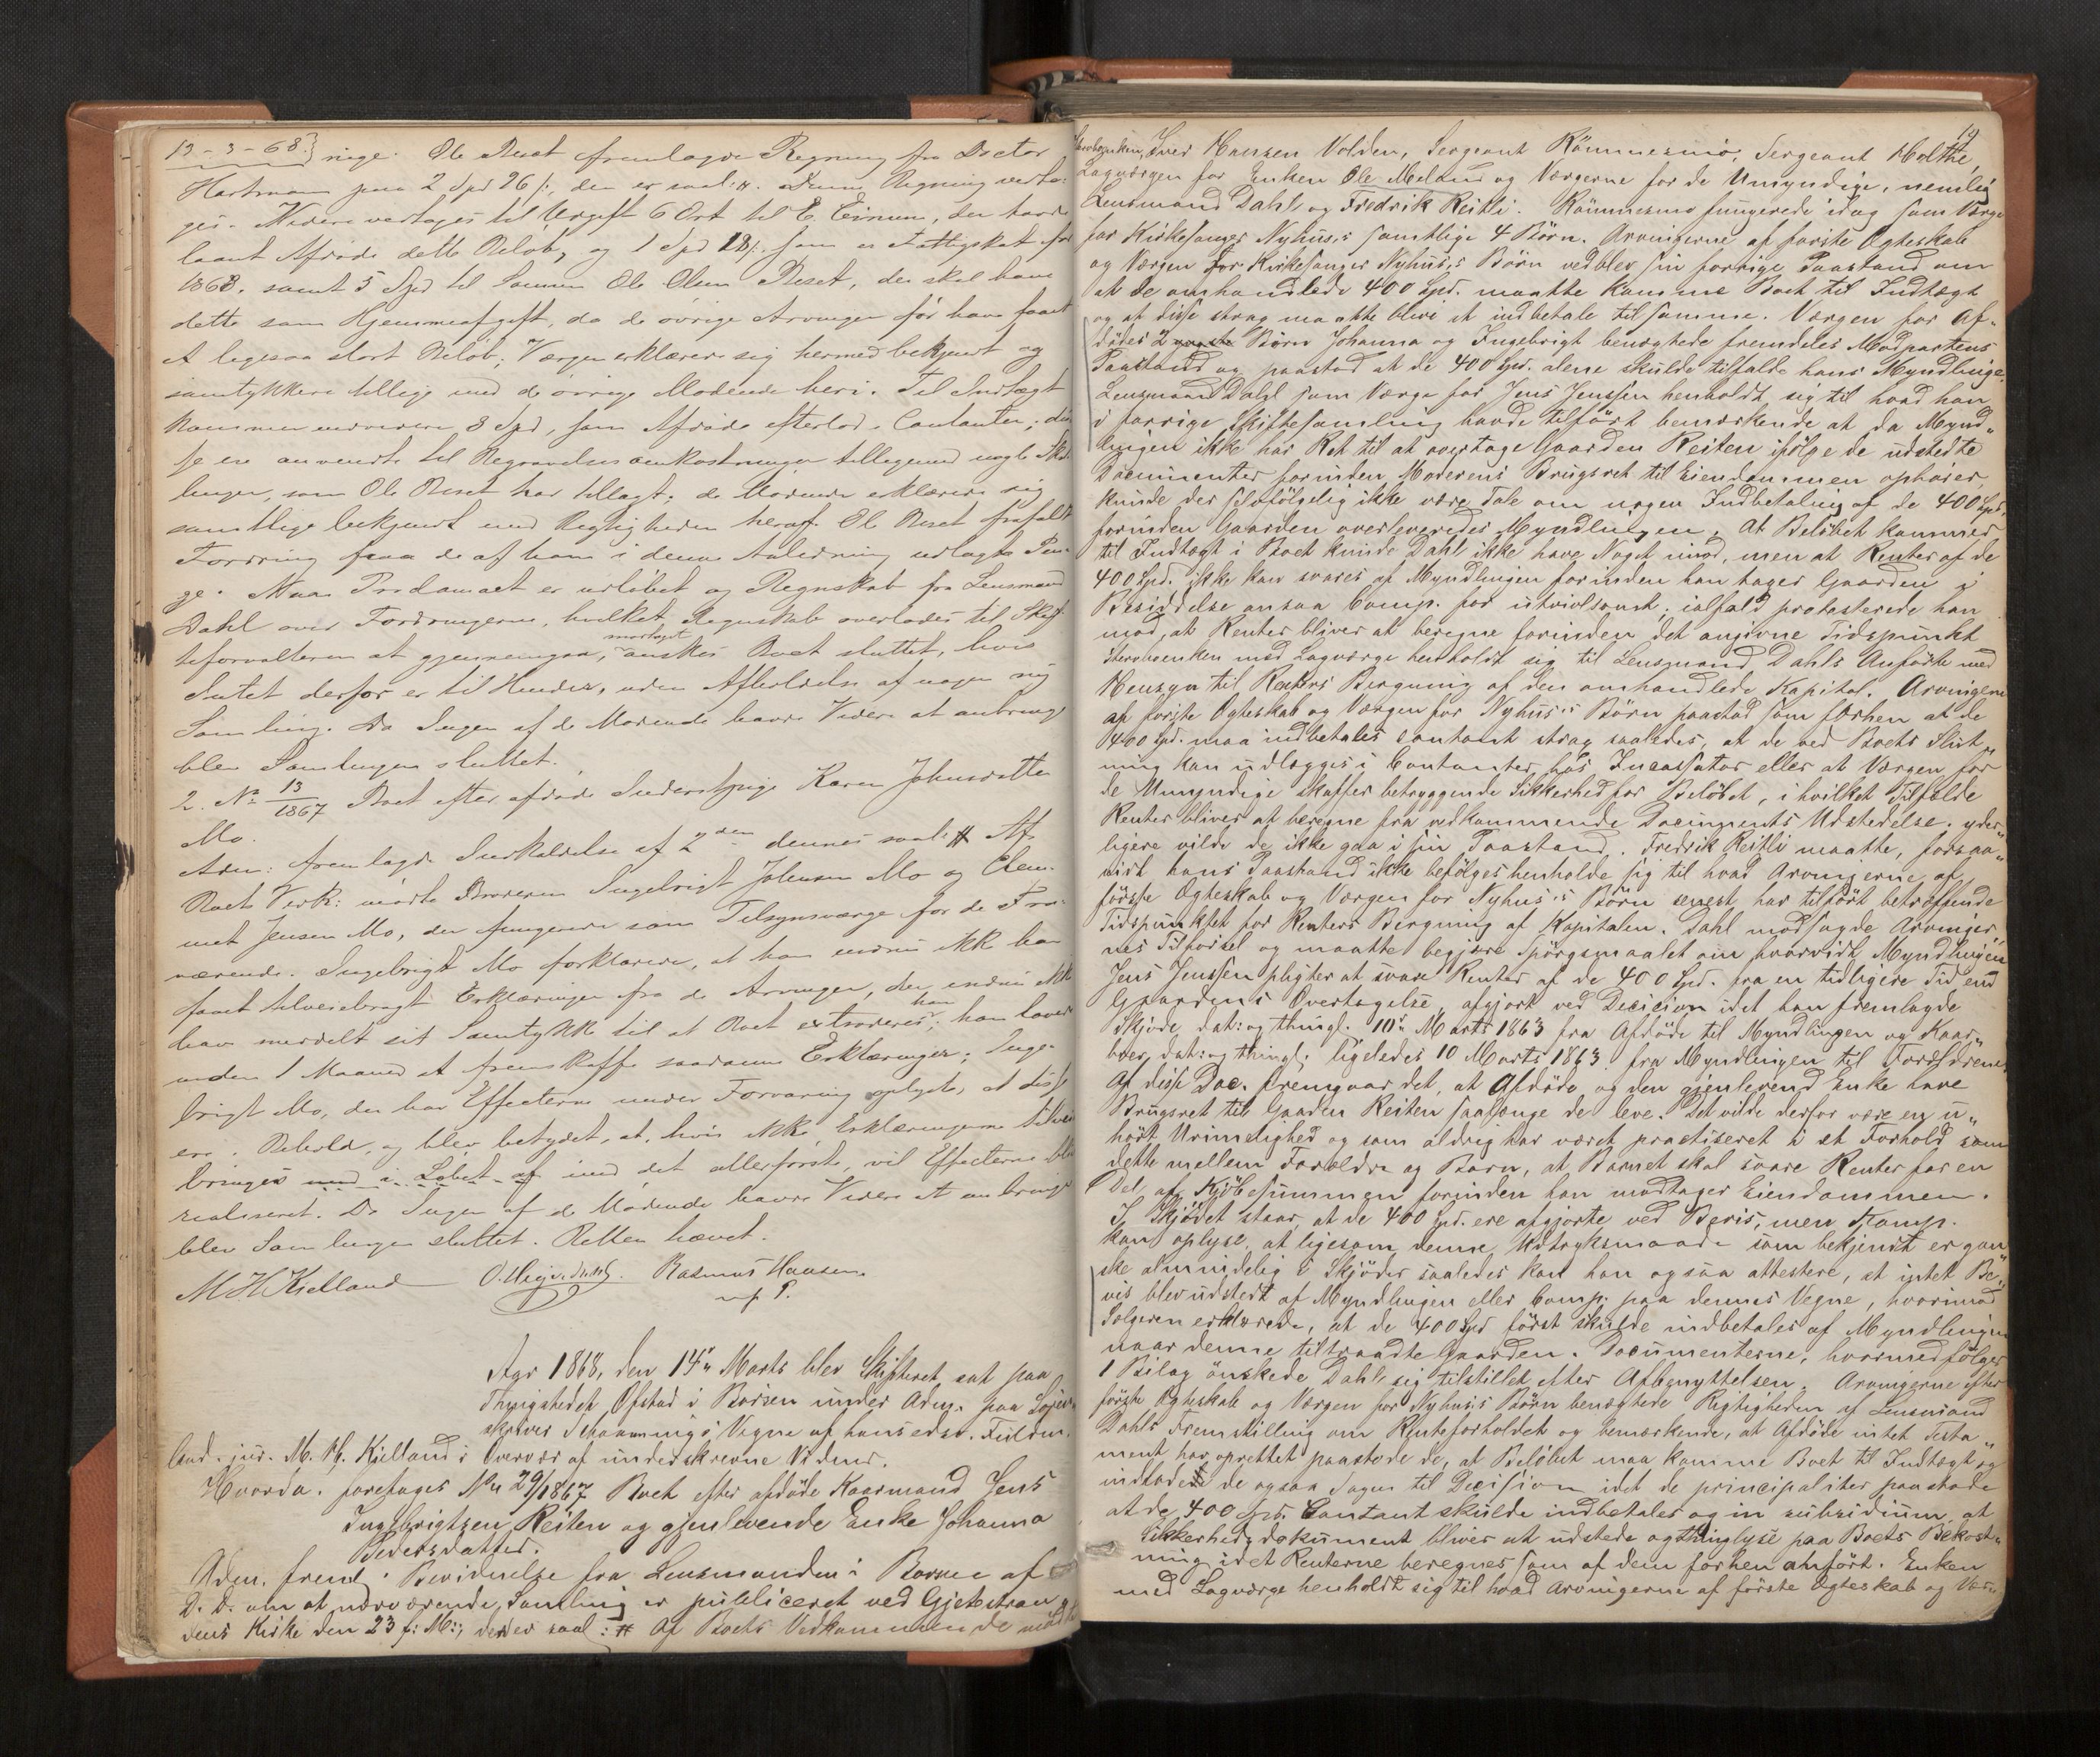 13-3-68.} nige. Ole Reset fremlagde Regning fra Doctor
Hartmann paa 2 Spd 26 s, den er saal: #. Denne Regning vedto-
ges. Videre vedtages til Udgift 6 Ort til E. Eimun, der havde
laant Afdøde dette Beløb, og 1 Spd 18 s. som er Fattigskat for
1868. samt 5 Spd til Sønnen Ole Olsen Reset, der skal have
dette som Hjemmeafgift, da de øvrige Arvinger før have faaet
et ligesaa stort Beløb; Værgen erklærede sig hermed bekjendt og
samtykkede tillige med de øvrige Mødende heri. Til Indtægt
kommer endvidere 3 Spd, som Afdøde efterlod i Contanter; dis-
se ere anvendte til Begravelsesomkostninger tilligemed nogle Skil-
linger, som Ole Reset har tillagt; de Mødende erklærede sig
samtlige bekjendt med Rigtigheden heraf. Ole Reset frafaldt
Fordring paa de af ham i denne Anledning udlagte Pen-
ge. Naar Proclamaet er udløbet og Regnskab fra Lensmand
Dahl over Fordringerne, hvilket Regnskab overlodes til Skif-
teforvalteren at gjennemgaa, modtaget ønskes Boet sluttet, hvis
Intet derfor er til Hinder, uden Afholdelse af nogen ny
Samling. Da Ingen af de Mødende havde Videre at anbringe
blev Samlingen sluttet.
2. No 13/1867 Boet efter afdøde Inderstpige Karen Johnsdatter
Mo.
Adm: fremlagde Indkaldelse af 2den dennes saal: # Af
Boets Vedk: mødte Broderen Ingebrigt Johnsen Mo og Clem-
met Jensen Mo, der fungerede som Tilsynsværge for de Fra-
værende. Ingebrigt Mo forklarede, at han endnu ikke har
faaet tilveiebragt Erklæringer fra de Arvinger, der endnu ikke
have meddelt sit Samtykke til at Boet extraderes ham; han lovede
inden 1 Maaned at fremskaffe saadanne Erklæringer; Inge-
brigt Mo, der har Effecterne under Forvaring oplyste, at disse
ere i Behold, og blev betydet, at, hvis ikke Erklæringerne tilveie-
bringes med i Løbet af ind det allerførste, vil Effecterne blive
realiseret. Da Ingen af de Mødende havde Videre at anbringe
blev Samlingen sluttet. Retten hævet.
M H Kielland Rasmus Hansen
m f P.
Aar 1868, den 14de Marts blev Skifteret sat paa
Thingstedet Ofstad i Børsen under Adm. paa Soren-
skriver Schanmings Vegne af hans edsv. Fuldm.
Cand. jur. M. H. Kielland i Overvær af underskrevne Vidner.
Hvorda: foretages No 29/1867 Boet efter afdøde Kaarmand Jens
Ingebrigtsen Reiten og gjenlevende Enke Johanna
Pedersdatter.
Adm. freml. Bevidnelse fra Lensmanden i Børsen af
D. D. om at nærværende Samling er publiceret ved Gjetestran-
dens Kirke den 23 f: M:, den er saal: # Af Boets Vedkommende mødte
19
Stervboenken, Iver Hansen Volden, Sergeant Rømmesmo, Sergeant Holthe,
Lagværgen for Enken Ole Meland og Værgerne for de Umyndige, nemlig
Lensmand Dahl og Fredrik Reitli. Rømmesmo fungerede idag som Værge
for Kirkesanger Nyhus's samtlige 4 Børn. Arvingerne af første Ægteskab
og Værgen for Kirkesanger Nyhus's Børn vedblev sin forrige Paastand om
at de omhandlede 400 Spd. maatte komme Boet til Indtægt
og at disse strax maatte blive at indbetale til samme. Værgen for Af-
dødes 2 Børn Johanna og Ingebrigt benægtede fremdeles Modpartens
Paastand og paastod at de 400 Spd. alene skulde tilfalde hans Myndlinge.
Lensmand Dahl som Værge for Jens Jenssen henholdt sig til hvad han
i forrige Skiftesamling havde tilført bemærkende at da Mynd-
lingen ikke har Ret til at overtage Gaarden Reiten ifølge de udstedte
Documenter forinden Moderens Brugsret til Eiendommen ophører,
kunde der selvfølgelig ikke være Tale om nogen Indbetaling af de 400 Spd.
forinden Gaarden overleveredes Myndlingen. At Beløbet kommer
til Indtægt i Boet kunde Dahl ikke have Noget imod, men at Renter af de
400 Spd. ikke kan svares af Myndlingen forinden han tager Gaarden i
Besiddelse ansaa Comp. for utvivlsomt, ialfald protesterede han
mod, at Renter bliver at beregne forinden det angivne Tidspunkt
Stervboenken med Lagværge henholdt sig til Lensmand Dahls Anførte med
Hensyn til Renters Beregning af den omhandlede Kapital. Arvingerne
af første Ægteskab og Værgen for Nyhus's Børn paastod som forhen at de
400 Spd. maa indbetales contant strax saaledes, at de ved Boets Slut-
ning kan udlægges i Contanter hos Incassator eller at Værgen for
de Umyndige skaffer betryggende Sikkerhed for Beløbet, i hvilket Tilfælde
Renter bliver at beregne fra vedkommende Documents Udstedelse. yder-
ligere vilde de ikke gaa i sin Paastand. Fredrik Reitli maatte, forsaa-
vidt hans Paastand ikke befølges henholde sig til hvad Arvingerne af
første Ægteskab og Værgen for Nyhus's Børn senest har tilført betræffende
Tidspunktet for Renters Beregning af Kapitalen. Dahl modsagde Arvinger-
nes Tilførsel og maatte begjære Spørgsmaalet om hvorvidt Myndlingen
Jens Jenssen pligter at svare Renter af de 400 Spd. fra en tidligere Tid end
Gaardens Overtagelse, afgjort ved Decision idet han fremlagde
Skjøde, dat: og thingl. 10de Marts 1863 fra Afdøde til Myndlingen og Kaar-
brev, dat: og thingl. ligeledes 10 Marts 1863 fra Myndlingen til Forældrene.
Af disse Doc. fremgaar det, at Afdøde og den gjenlevend Enke have
Brugsret til Gaarden Reiten saalænge de leve. Det vilde derfor være en u-
hørt Urimelighed og som aldrig har været practiseret i et Forhold som
dette mellem Forældre og Barn, at Barnet skal svare Renter for en
Del af Kjøbesummen forinden han modtager Eiendommen.
I Skjødet staar, at de 400 Spd. ere afgjorte ved Bevis, men Komp.
kan oplyse, at ligesom denne Udtryksmaade som bekjendt er gan-
ske almindelig i Skjøder saaledes kan han ogsaa attestere, at intet Be-
vis blev udstedt af Myndlingen eller Comp. paa dennes Vegne, hvorimod
Sælgeren erklærede, at de 400 Spd først skulde indbetales af Myndlingen
naar denne tiltraadte Gaarden. Documenterne, hvormed følger
1 Bilag ønskede Dahl sig tilstillet efter Afbenyttelsen. Arvingerne efter
første Ægteskab og Værgen for Nyhus's Børn benægtede Rigtigheden af Lensmand
Dahls Fremstilling om Renteforholdet og bemærkende, at Afdøde intet Testa-
ment har oprettet paastode de, at Beløbet maa komme Boet til Indtægt og
indlode de ogsaa Sagen til Decision idet de principaliter paastode
at de 400 Spd. Contant skulde indbetales og in subsidium, at
Sikkerhedsdokument bliver at udstede og thinglyse paa Boets Bekost-
ning idet Renterne beregnes som af dem forhen anført. Enken
med Lagværge henholdt sig til hvad Arvingerne af første Ægteskab og Vær-